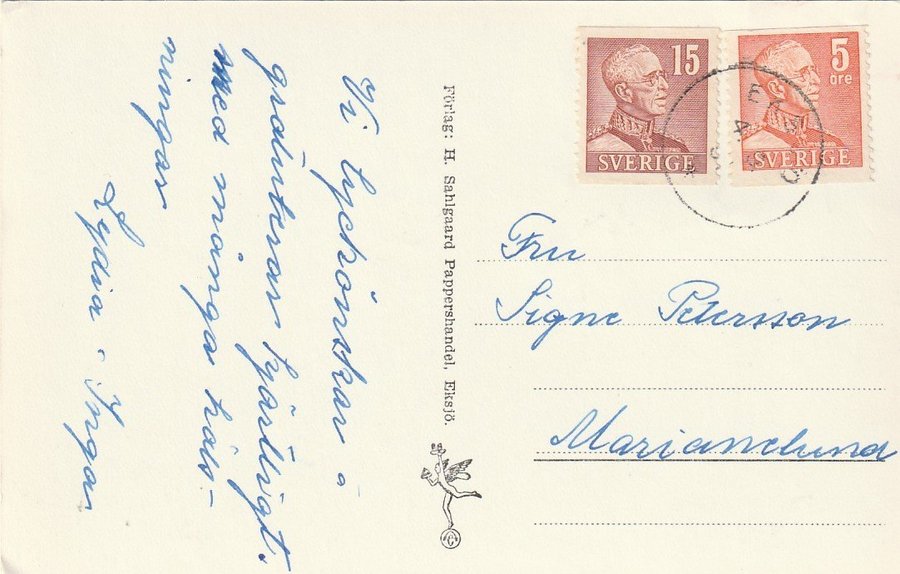 Vi lyckönskar o
gratulerar hjärtligt.
med många häls-
ningar
Lydia o Ingar
Förlag: H. Sahlgaard Pappershandel, Eksjö.
15
SVERIGE
5
öre
SVERIGE
EKSJÖ
Fru
Signe Petersson
Mariannelund